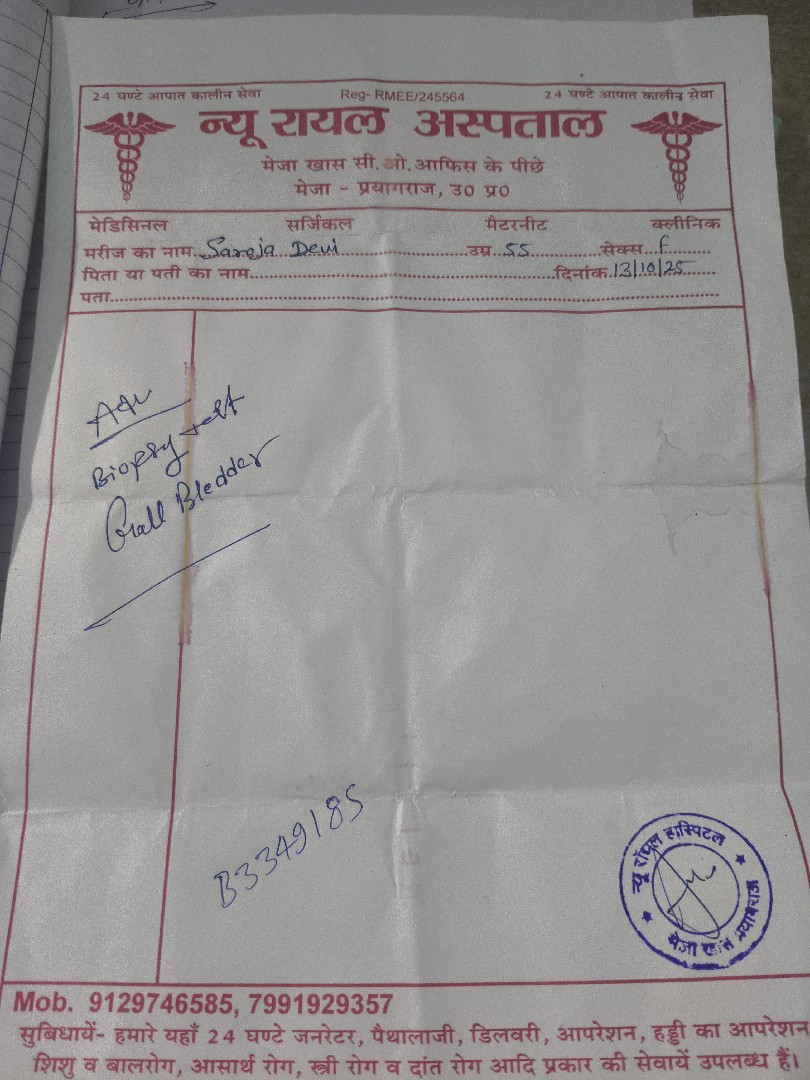 24 घण्टे आपात कालीन सेवा Reg- RMEE/245564 24 घण्टे आपात कालीन सेवा
न्यू रायल अस्पताल
मेजा खास सी.ओ.आफिस के पीछे
मेजा - प्रयागराज, उ० प्र०
मेडिसिनल सर्जिकल मैटरनीट क्लीनिक
मरीज का नाम Saroja Devi उम्र 55 सेक्स F
पिता या पती का नाम दिनांक 13/10/25
पता
Adv
Biopsy test
Gall Bledder
B3349185
न्यू रॉयल हास्पिटल
मेजा खास प्रयागराज
Mob. 9129746585, 7991929357
सुबिधायें- हमारे यहाँ 24 घण्टे जनरेटर, पैथालाजी, डिलवरी, आपरेशन, हड्डी का आपरेशन
शिशु व बालरोग, आसार्थ रोग, स्त्री रोग व दांत रोग आदि प्रकार की सेवायें उपलब्ध हैं।